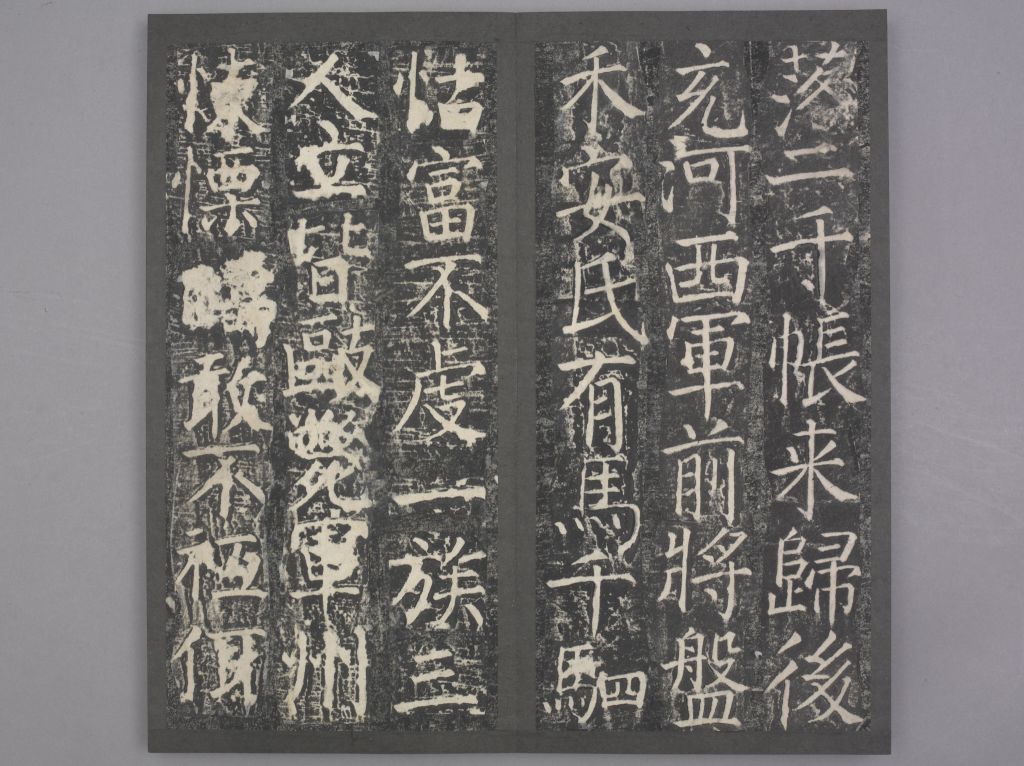 落二千帳来歸後
充河西軍前將盤
禾安氏有馬千駟
怙富不虔一族三
人立皆敺斃軍州
悚慄疇敢不祗俄